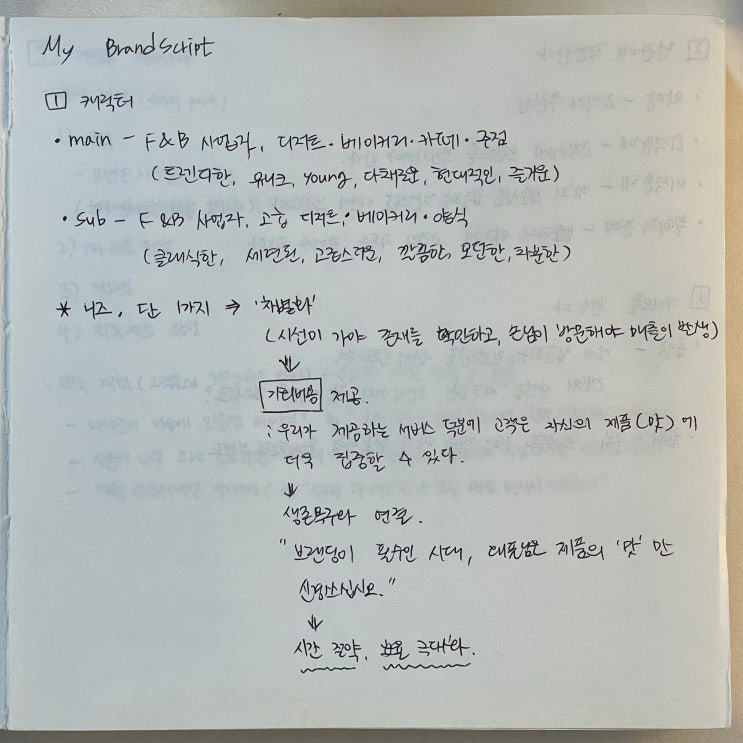 My BrandScript
1 캐릭터
· main - F&B 사업자, 디저트·베이커리·카페·주점
(트렌디한, 유니크, young, 다채로운, 현대적인, 즐거운)
· sub - F&B 사업자, 고급 디저트·베이커리·양식
(클래식한, 세련된, 고급스러운, 깔끔한, 모던한, 차분한)
* 니즈, 단 1가지 ⇒ '차별화'
(시선이 가야 존재를 확인하고, 손님이 방문해야 매출이 발생)
⇓
기회비용 제공.
: 우리가 제공하는 서비스 덕분에 고객은 자신의 제품(맛)에
더욱 집중할 수 있다.
↓
생존욕구와 연결.
"브랜딩이 필수인 시대, 대표님은 제품의 '맛'만
신경쓰십시오."
↓
시간 절약, 효율 극대화.